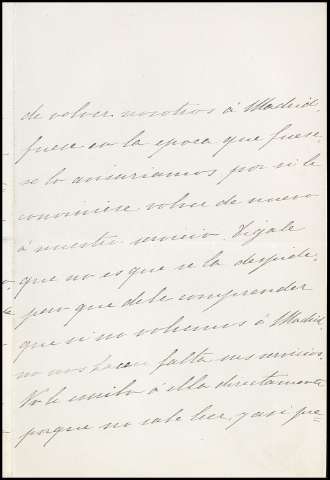 de volver nosotros á Madrid,
fuese en la epoca que fuese,
se lo avisariamos por si le
conviniese volver de nuevo
á nuestro servicio. Digale
que no es que se la despide,
pero que debe comprender
que si no volvemos á Madrid,
no nos hacen falta sus servicios.
No le escribo á ella directamente
porque no sabe leer, y asi pre-